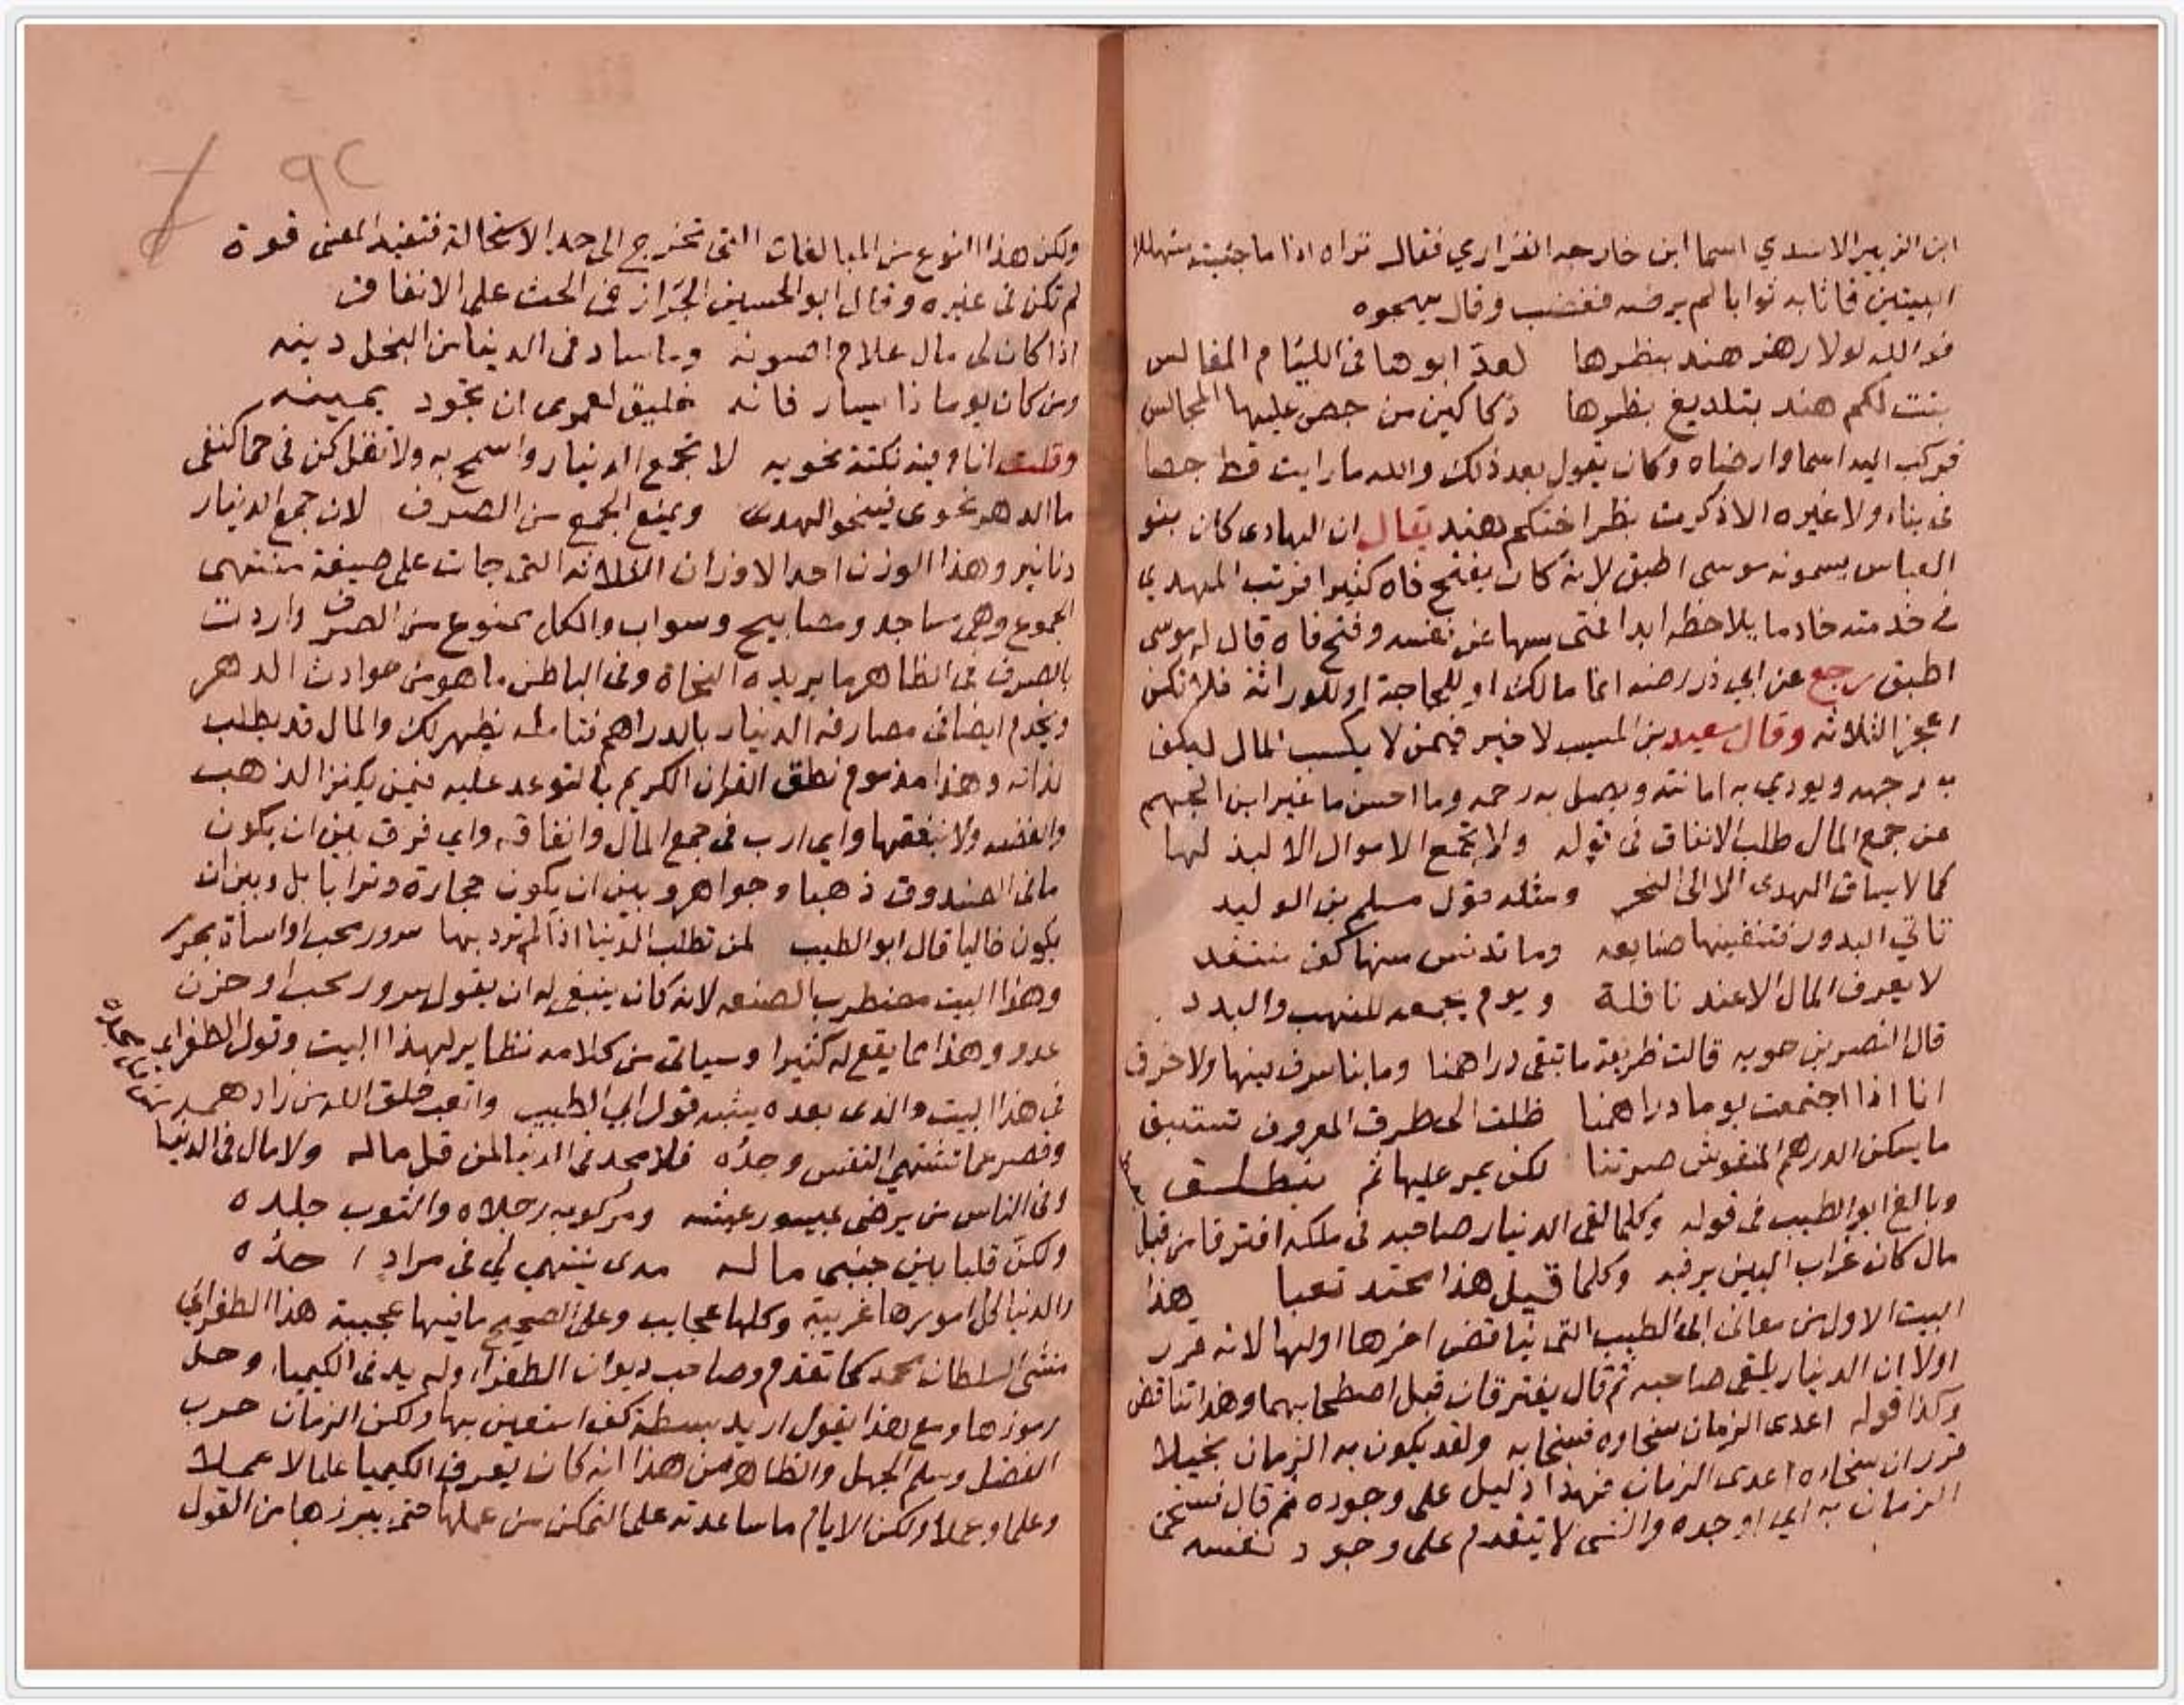 ابن الزبير الاسدي اسما ابن خارجه الفزاري فقال تراه اذا ما جئته متهللا
البيتين فاثابه ثوابا لم يرضه فغضب وقال يهجوه
فو الله لولا رهز هند ببظرها لعد ابوها في اللئام المفاليس
بنت لكم هند بتلديغ بظرها دكاكين من جص عليها المجالس
فركب اليه اسما وارضاه وكان يقول بعد ذلك والله ما رايت قط جصا
في بناء ولا غيره الا ذكرت بظر اختكم هند يقال ان الهادى كان بنو
العباس يسمونه موسى اطبق لانه كان يفتح فاه كثيرا فرتب المهدي
في خدمته خادما يلاحظه ابدا فمتى سها عن نفسه وفتح فاه قال له موسى
اطبق رجع عن ابي ذر رضه انما مالك او للجاجة او للوراثة فلا تكن
اعجز الثلاثه وقال سعيد بن المسيب لا خير فيمن لا يكسب المال ليكف
به وجهه ويودي به امانته ويصل به رحمه وما احسن ما غبر ابن الجهم
عن جمع المال طلب الانفاق في قوله ولا تجمع الاموال الا لبذلها
كما لا يساق الهدى الا الى النحر ومثله قول مسلم بن الوليد
تاتي البدور فتفنيها صنايعه وما تدنس منها كف منتقد
لا يعرف المال الا عند نافلة ويوم يجمعه للنهب والبدد
قال النضر بن حويه قالت طريفة ما تبقى دراهمنا وما بنا سرف فيها ولا خرق
انا اذا اجتمعت يوما دراهمنا ظلت الى طرف المعروف تستبق
ما يسكن الدرهم المنقوش صرتنا لكن يمر عليها ثم ينطلق
وبالغ ابو الطيب في قوله وكلما لقى الدنيار صاحبه في ملكه افترقا من قبل
مال كان غراب البين يرقبه وكلما قيل هذا مجتد نعبا هذا
البيت الاول من معانى ابي الطيب التى يناقض اخرها اولها لانه قرر
اولا ان الدنيار يلقى صاحبه ثم قال يفترقان قبل اصطحابهما وهذا تناقض
وكذا قوله اعدى الزمان سخاوه فسخا به ولقد يكون به الزمان بخيلا
قرر ان سخاءه اعدى الزمان فهذا دليل على وجوده ثم قال فسخا
الزمان به اي اوجده والشى لا يتقدم على وجود نفسه
٩٢
ولكن هذا النوع من المبالغات التى تخرج الى حد الاستحالة فتفيد المعنى قوة
لم تكن في غيره وقال ابو الحسين الجزار في الحث على الانفاق
اذا كان لى مال علام اصونه وما ساد في الدنيا من البخل دينه
ومن كان يوما ذا يسار فانه خليق لعمرى ان تجود يمينه
وقلت انا وفيه نكتة نحويه لا تجمع الدنيار واسمح به ولا تقل كن في حما كنفى
ما الدهر نحوى فينحو الهدى ويمنع الجمع من الصرف لان جمع الدنيار
دنانير وهذا الوزن احد الاوزان الثلاثه التى جات على صيغة منتهى
الجموع وهى مساجد ومصابيح وسواب والكل ممنوع من الصرف واردت
بالصرف في الظاهر ما يريده النحاة وفي الباطن ما هو من حوادث الدهر
ويخدم ايضا في مصارفه الدنيار بالدراهم فتامله يظهر لك والمال قد يطلب
لذاته وهذا مذموم نطق القران الكريم بالتوعد عليه فيمن يكنز الذهب
والفضه ولا ينفقها واي ارب في جمع المال وانفاقه واي فرق بين ان يكون
ما في الصندوق ذهبا وجواهر وبين ان يكون حجارة وترابا بل وبين ان
يكون خاليا قال ابو الطيب لمن تطلب الدنيا اذا لم ترد بها سرور محب او اساة مجرم
وهذا البيت مضطرب الصنعه لانه كان ينبغى له ان يقول سرور محب او حزن
عدو وهذا مما يقع له كثيرا وسياتى من كلامه نظاير لهذا البيت وقول الطغراى
في هذا البيت والذى بعده يشبه قول ابي الطيب واتعب خلق الله من زاد همه
وقصر عما تشتهي النفس وجده فلا مجد في الدنيا لمن قل ماله ولا مال في الدنيا
وفى الناس من يرضى بميسور عيشه ومركوبه رجلاه والثوب جلده
ولكن قلبا بين جنبى ماله مدى ينتهي لي في مراد احده
والدنيا كل امورها غريبة وكلها عجايب وعلى الصحيح ما فيها عجيبة هذا الطغراي
منشى السلطان محمد كما تقدم وصاحب ديوان الطغرا وله يد في الكيمياء وحل
رموزها ومع هذا يقول اريد بسطة كف استعين بها ولكن الزمان حرب
الفضل وسلم الجهل والظاهر من هذا انه كان يعرف الكيميا علما لا عملا
وعلما وعملا ولكن الايام ما ساعدته على التمكن من عملها حتى يبرزها من القول